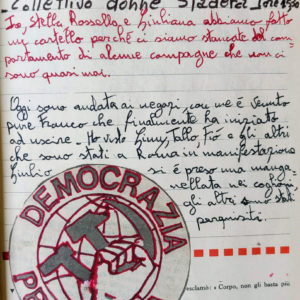 Collettivo donne Stadera
Io, Stella, Rossella e Giuliana abbiamo fatto
un cartello perché ci siamo stancate del com-
portamento di alcune compagne che non ci
sono quasi mai.
Oggi sono andata ai negozi, con me è venuto
pure Franco che finalmente ha iniziato
ad uscire. Ho visto Giny, Tallo, Fiò e gli altri
che sono stati a Roma in manifestazione
Giulio si è preso una manga-
nellata nei cogioni
gli altri sono stati
perquisiti.
DEMOCRAZIA
PR
esclamò: « Corpo, non gli basta più